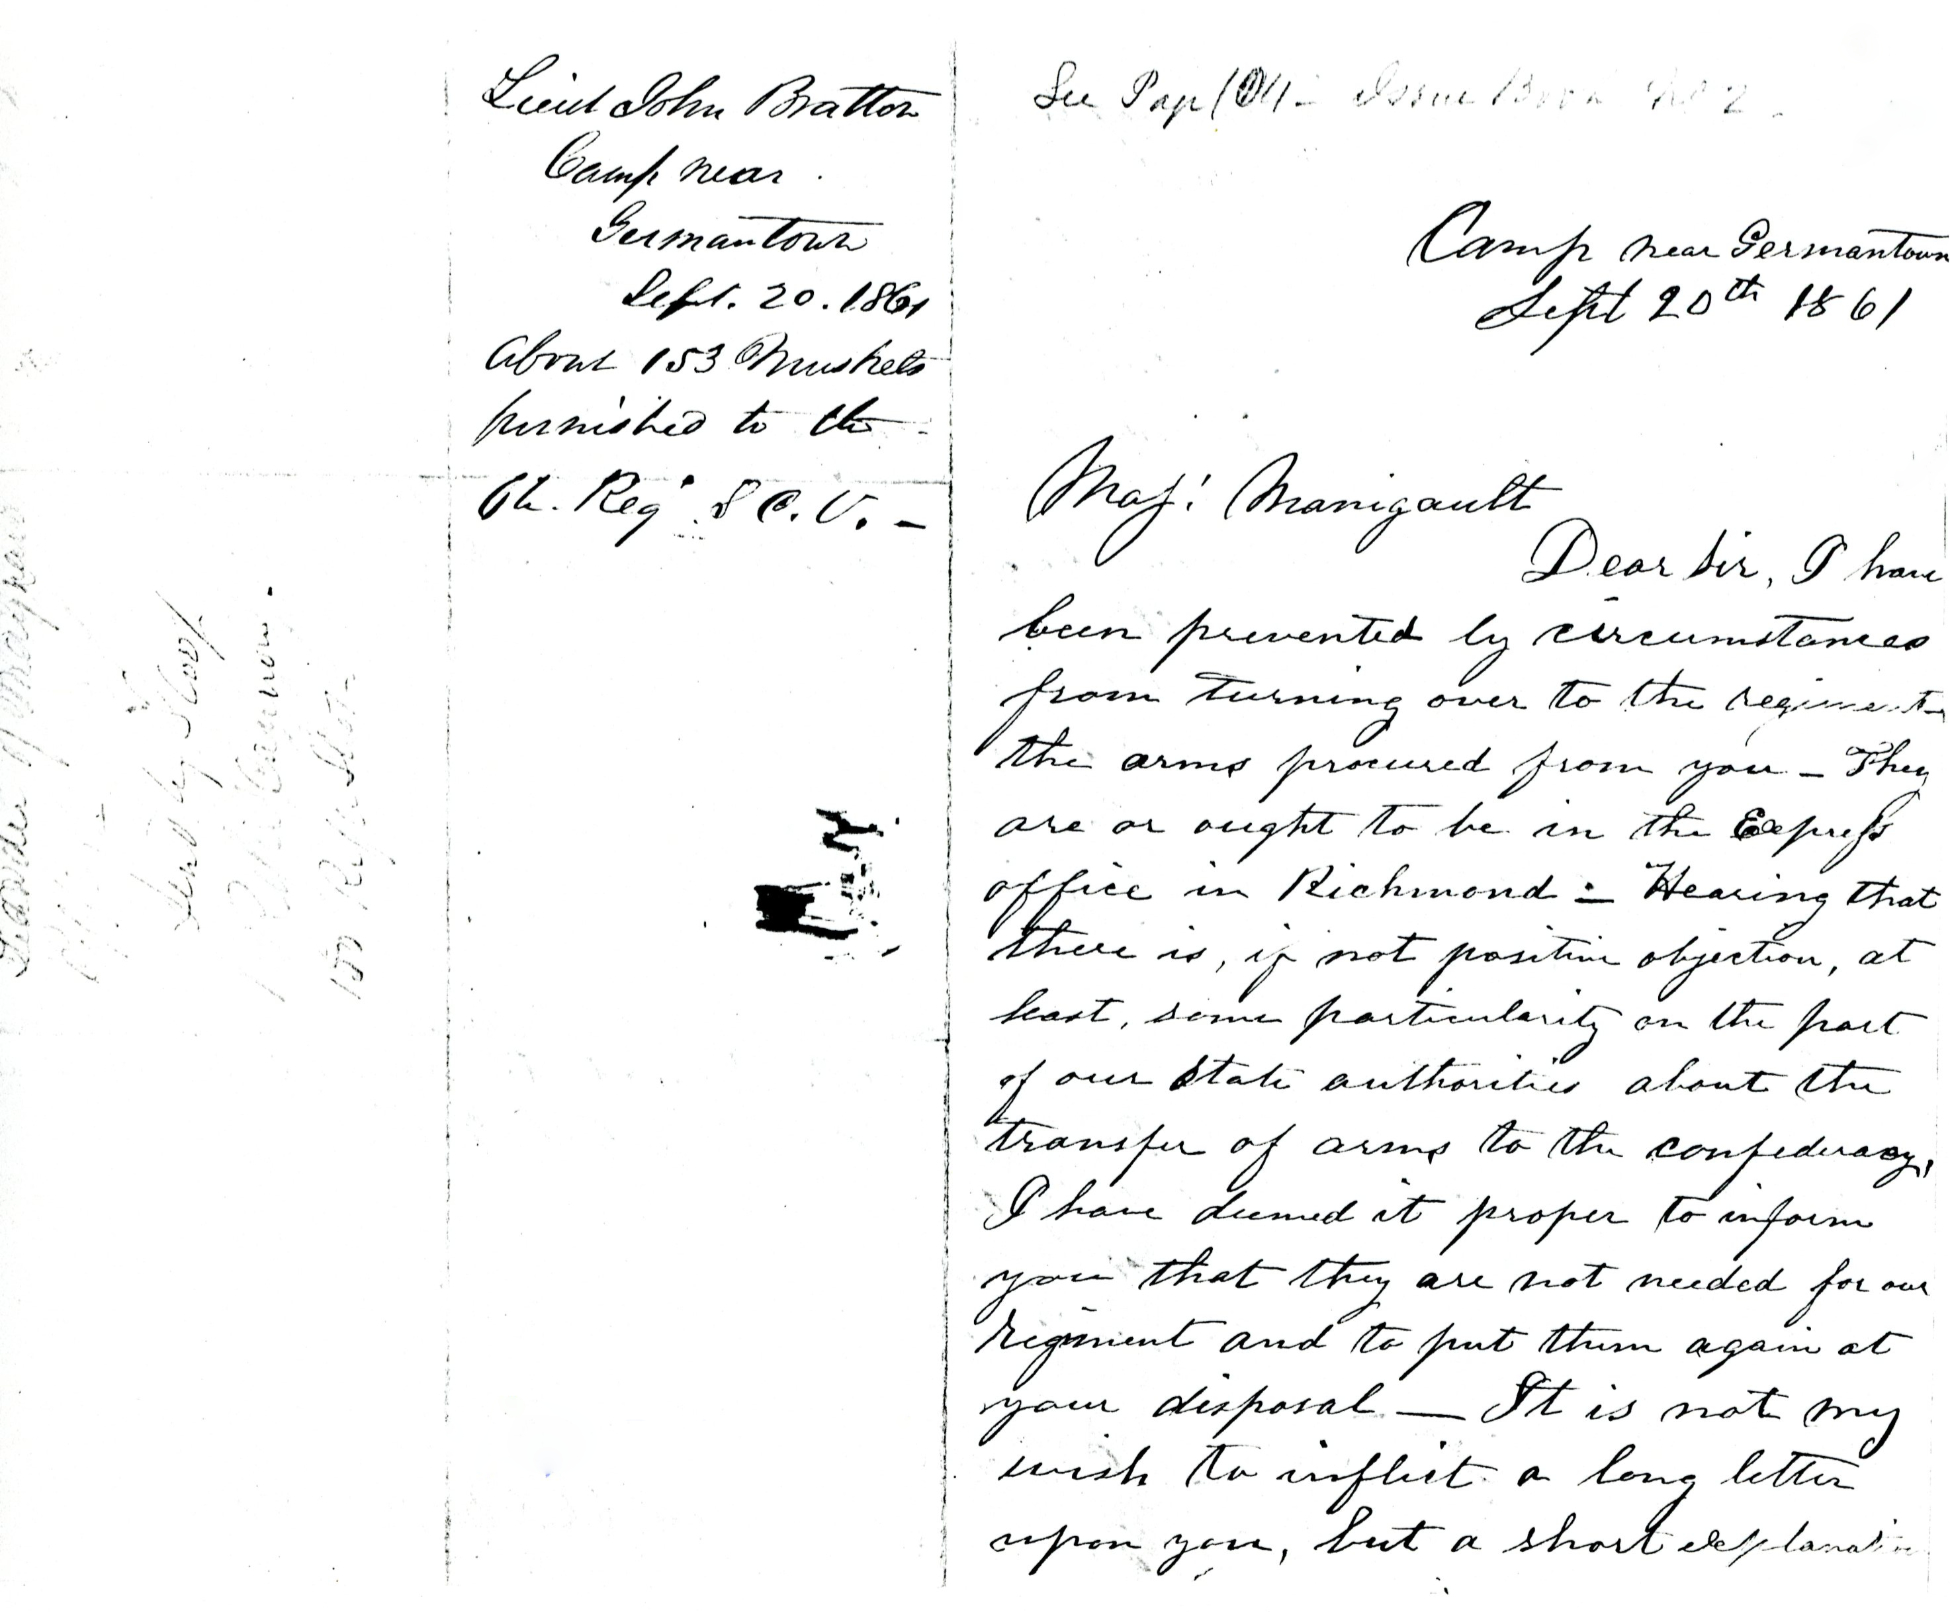 Lieut John Bratton
Camp near
Germantown
Sept. 20. 1861
About 153 Muskets
furnished to the
6th. Reg S C. V. —
See Page Issue Book No 2
Camp near Germantown
Sept 20th 1861
Maj: Manigault
Dear Sir, I have
been prevented by circumstances
from turning over to the regiment
the arms procured from you — They
are or ought to be in the Express
office in Richmond — Hearing that
there is, if not positive objection, at
least, some particularity on the part
of our State authorities about the
transfer of arms to the confederacy,
I have deemed it proper to inform
you that they are not needed for our
regiment and to put them again at
your disposal — It is not my
wish to inflict a long letter
upon you, but a short explanation